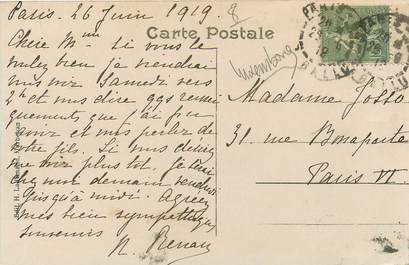 Paris. 26 Juin 1919.
Carte Postale
Chère Mme - Si vous le
voulez bien je viendrai
vous voir Samedi vers
2h et vous dire qqs
que j'ai pu
avoir et vous parler de
votre fils. Si vous désirez
me voir plus tôt, je serai
chez moi demain vendredi
jusqu'à midi. Agréez
mes bien sympathiques
souvenirs
N. Renau
Luxembourg
Madame Josso
31, rue Bonaparte
Paris VI
PARIS